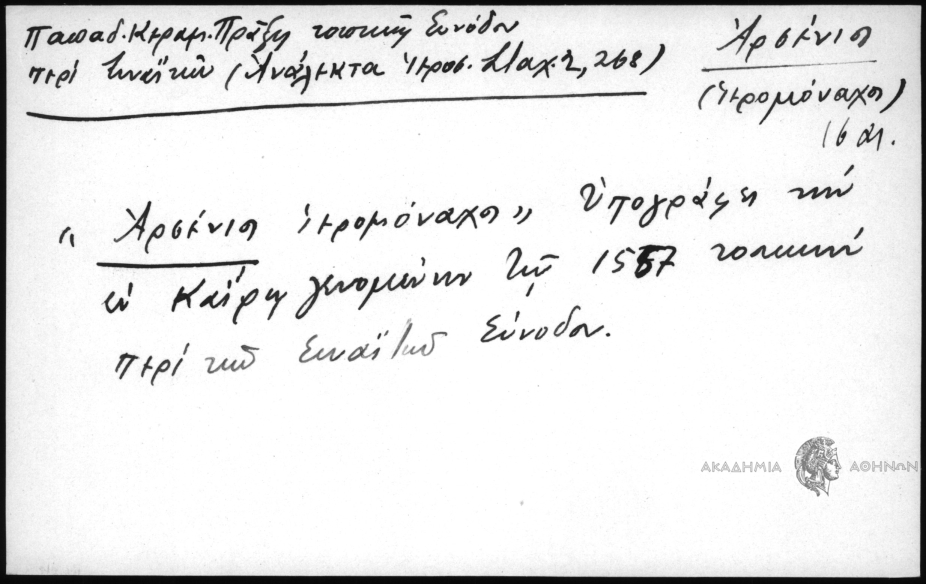 Παπαδ. Κεραμ. Πρᾶξις τοπικῆς Συνόδου
περὶ Σιναϊτῶν (Ἀνάλεκτα Ἱεροσ. Σταχ. 2, 268)
Ἀρσένιος
(ἱερομόναχος)
16 αι.
"Ἀρσένιος ἱερομόναχος" ὑπογράφει τὴν
ἐν Καΐρῳ γενομένην τῷ 1557 τοπικὴν
περὶ τῶν Σιναϊτῶν Σύνοδον.
ΑΚΑΔΗΜΙΑ ΑΘΗΝΩΝ